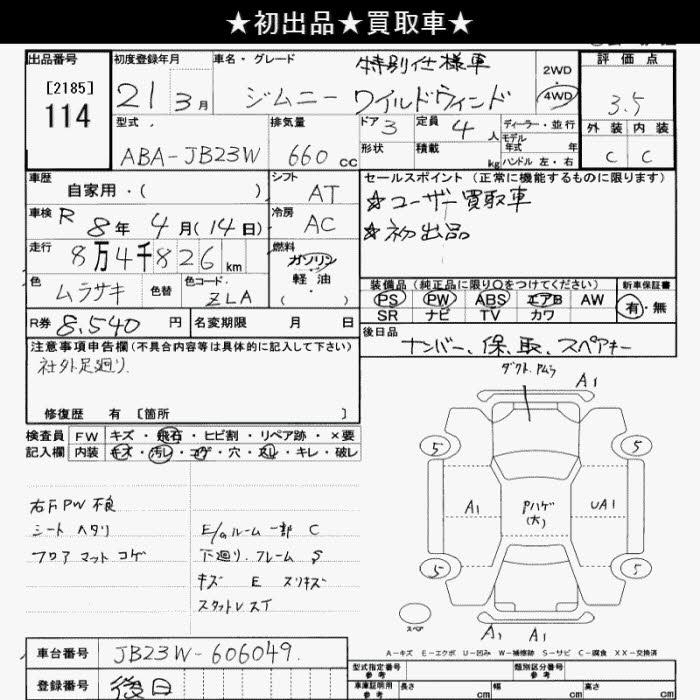 ★初出品★買取車★
出品番号
[2185]
114
初度登録年月
21 3月
車名・グレード
特別仕様車
ジムニー ワイルドウィンド
2WD
・
4WD
評価点
3.5
外装 内装
C C
型式
ABA-JB23W
排気量
660 cc
ドア 3
形状
定員 4人
積載 kg
ディーラー・並行
モデル
年式 年
ハンドル 左・右
車歴
自家用・( )
シフト
AT
車検 R 8年 4月(14日)
冷房
AC
走行
8万4千826km
燃料
ガソリン
軽油
・
( )
色
ムラサキ
色替
色コード
ZLA
R券 8,540 円
名変期限 月 日
セールスポイント (正常に機能するものに限ります)
☆ユーザー買取車
☆初出品
装備品(純正品に限り○をつけてください)
PS PW ABS エアB AW
SR ナビ TV カワ
新車保証書
有・無
後日品
ナンバー、保、取、スペアキー
注意事項申告欄(不具合内容等は具体的に記入して下さい)
社外足廻り.
修復歴 有 [箇所 ]
検査員
記入欄
FW キズ・飛石・ヒビ割・リペア跡・×要
内装 キズ・汚レ・コゲ・穴・スレ・キレ・破レ
右F PW 不良
シート ヘタリ
フロア マット コゲ
E/gルーム 一部 C
下廻り. フレーム S
キズ E スリキズ
スタットレス イ
ダクト.
A1
5 5
A1 Pハゲ(大) UA1
5 5
スペア
A1 A1
A-キズ E-エクボ U-凹み W-補修跡 S-サビ C-腐食 XX-交換済
車台番号 JB23W-606049.
登録番号 後日
型式指定番号
参考
類別区分番号
参考
車庫証明用
参考
長さ cm
幅 cm
高さ cm